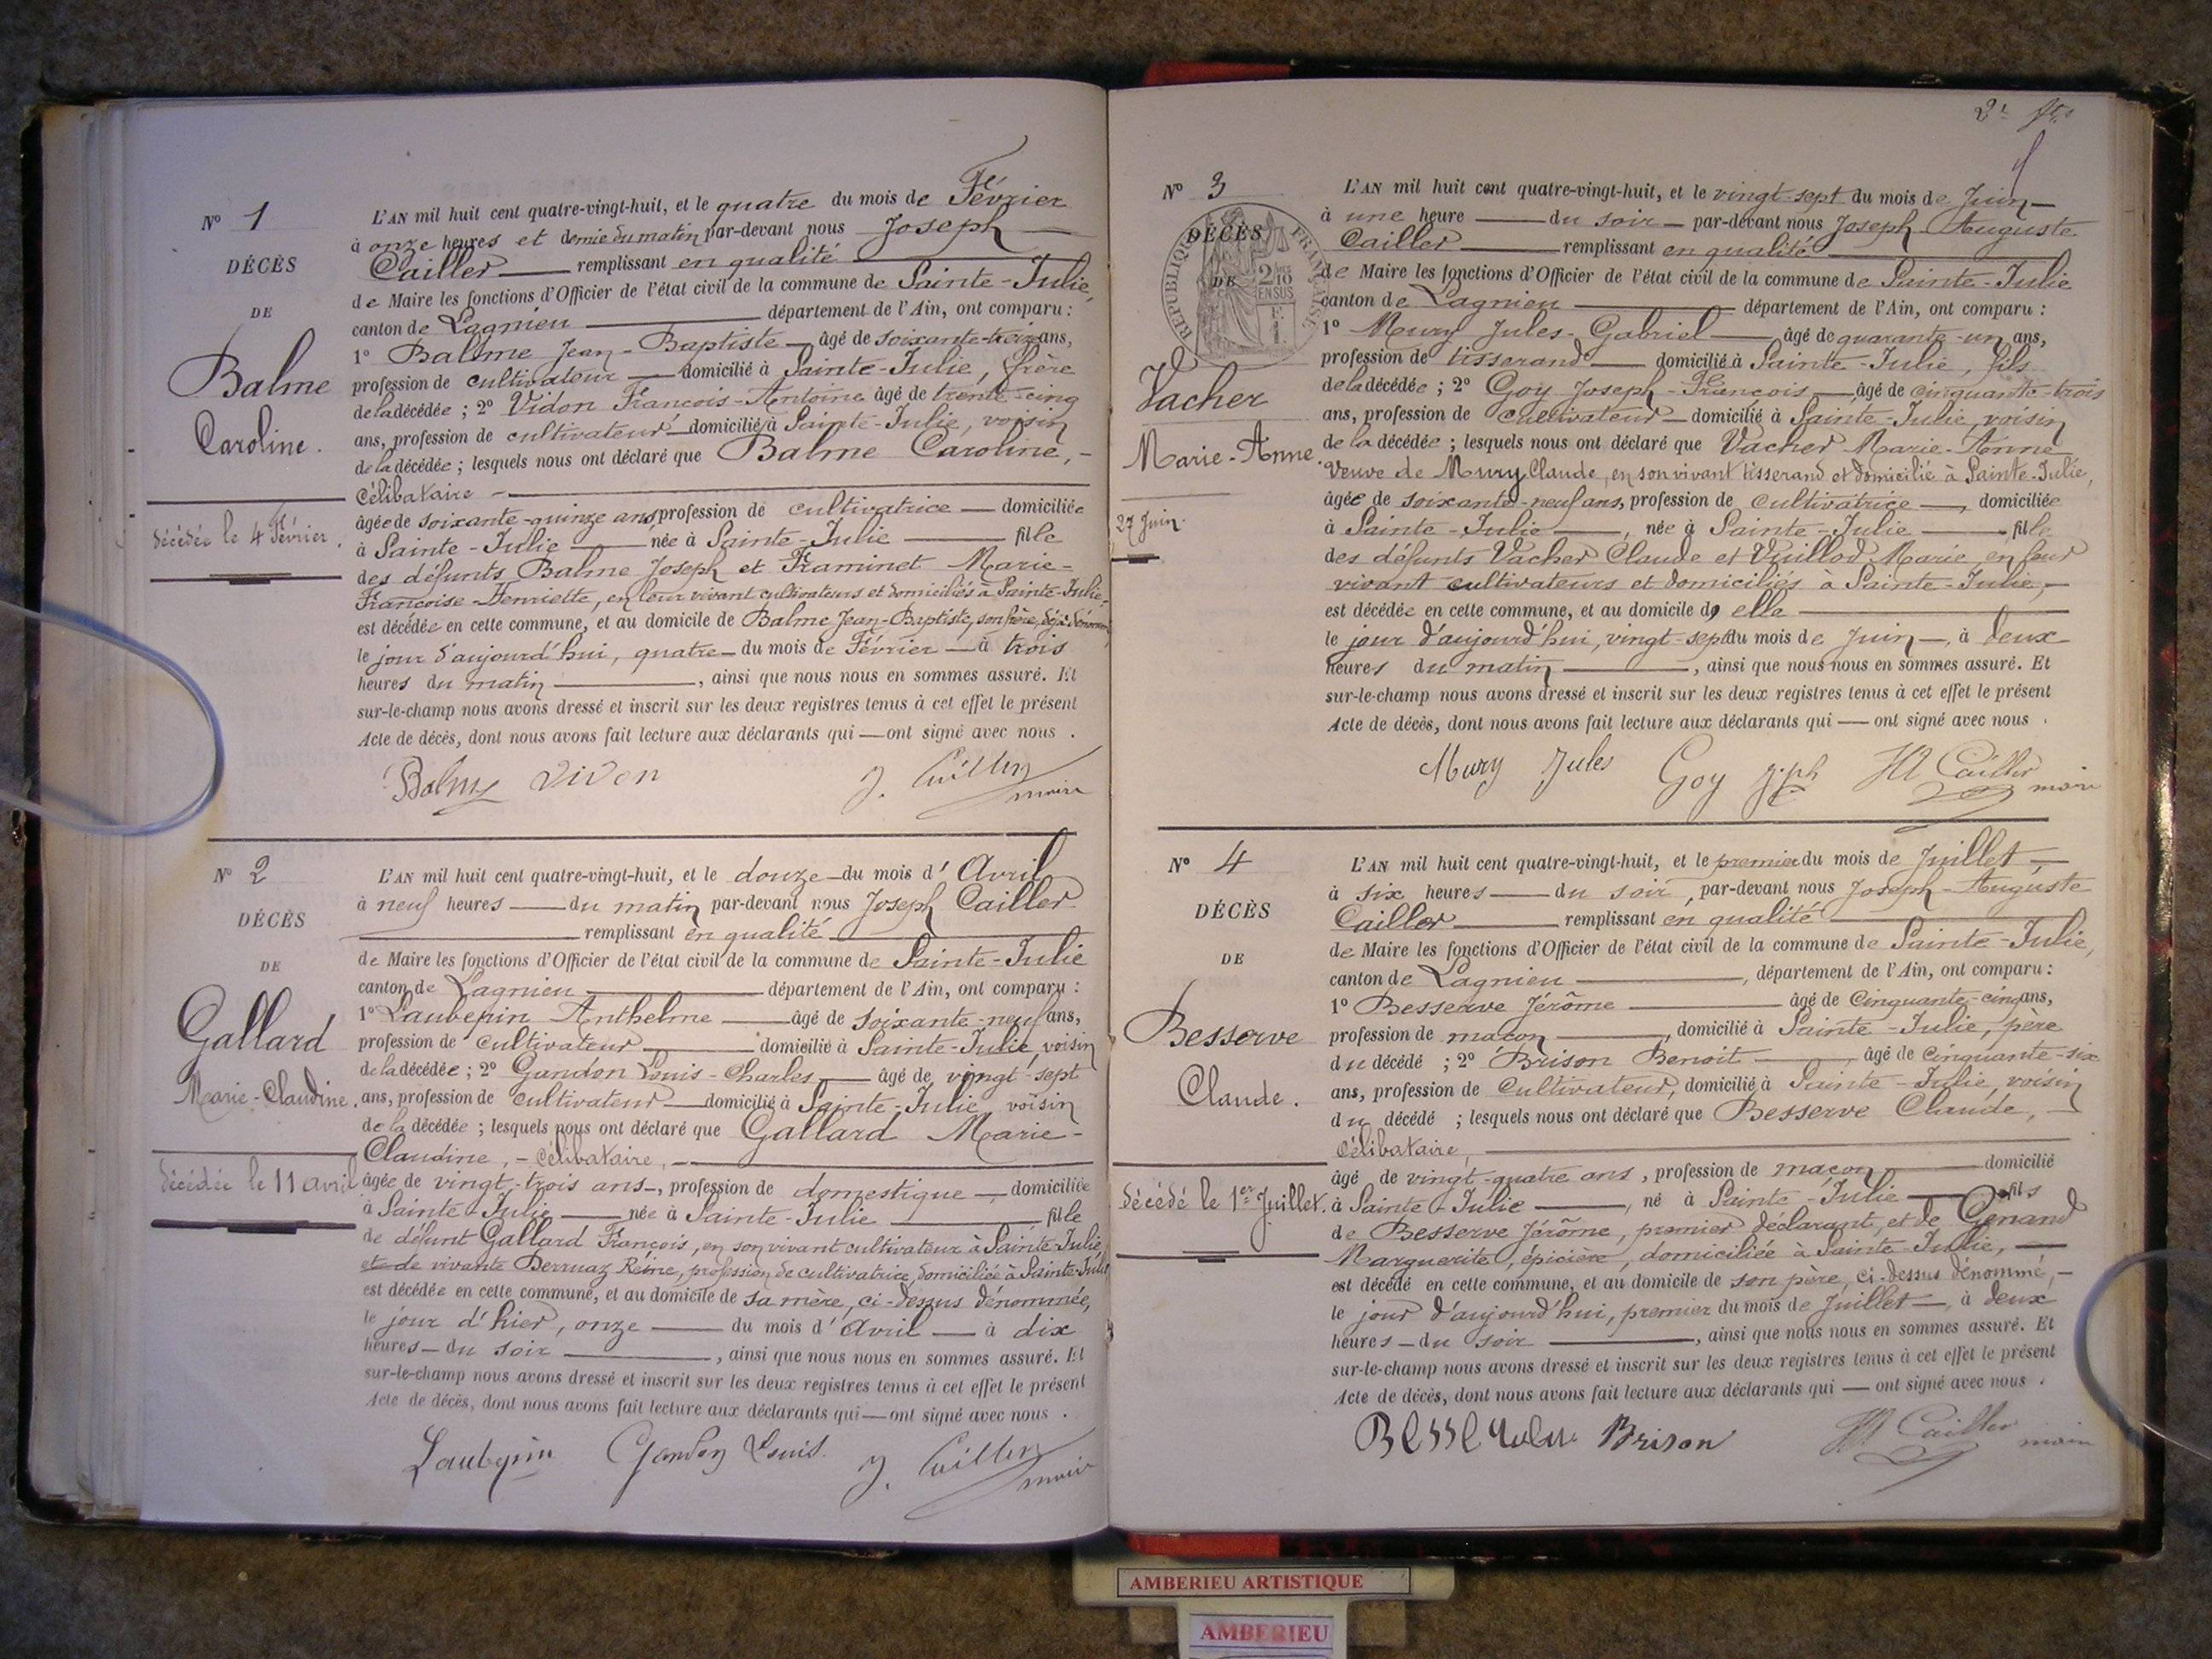 N° 1
DÉCÈS
DE
Balme
Caroline.
décédée le 4 Février.
L'AN mil huit cent quatre-vingt-huit, et le quatre du mois de Février
à onze heures et demie du matin par-devant nous Joseph
Cailler remplissant en qualité
de Maire les fonctions d'Officier de l'état civil de la commune de Sainte-Julie,
canton de Lagnieu département de l'Ain, ont comparu :
1° Balme Jean-Baptiste âgé de soixante-treize ans,
profession de cultivateur domicilié à Sainte-Julie, frère
de la décédée ; 2° Vidon François-Antoine âgé de trente-cinq
ans, profession de cultivateur domicilié à Sainte-Julie, voisin
de la décédée ; lesquels nous ont déclaré que Balme Caroline,
célibataire
âgée de soixante-quinze ans, profession de cultivatrice domiciliée
à Sainte-Julie née à Sainte-Julie fille
des défunts Balme Joseph et Framinet Marie-
Françoise-Henriette, en leur vivant cultivateurs et domiciliés à Sainte-Julie,
est décédée en cette commune, et au domicile de Balme Jean-Baptiste, son frère, déjà dénommé,
le jour d'aujourd'hui, quatre du mois de Février à trois
heures du matin, ainsi que nous nous en sommes assuré. Et
sur-le-champ nous avons dressé et inscrit sur les deux registres tenus à cet effet le présent
Acte de décès, dont nous avons fait lecture aux déclarants qui — ont signé avec nous.
Balme Vidon J. Cailler
maire
N° 2
DÉCÈS
DE
Gallard
Marie-Claudine.
décédée le 11 avril
L'AN mil huit cent quatre-vingt-huit, et le douze du mois d'Avril
à neuf heures du matin par-devant nous Joseph Cailler
remplissant en qualité
de Maire les fonctions d'Officier de l'état civil de la commune de Sainte-Julie
canton de Lagnieu département de l'Ain, ont comparu :
1° Laubepin Anthelme âgé de soixante-neuf ans,
profession de cultivateur domicilié à Sainte-Julie, voisin
de la décédée ; 2° Gandon Louis-Charles âgé de vingt-sept
ans, profession de cultivateur domicilié à Sainte-Julie, voisin
de la décédée ; lesquels nous ont déclaré que Gallard Marie-
Claudine, - célibataire,
âgée de vingt-trois ans, profession de domestique domiciliée
à Sainte-Julie née à Sainte-Julie fille
de défunt Gallard François, en son vivant cultivateur à Sainte-Julie
et de vivante Derruaz Reine, profession de cultivatrice, domiciliée à Sainte-Julie
est décédée en cette commune, et au domicile de sa mère, ci-dessus dénommée,
le jour d'hier, onze du mois d'Avril à dix
heures du soir, ainsi que nous nous en sommes assuré. Et
sur-le-champ nous avons dressé et inscrit sur les deux registres tenus à cet effet le présent
Acte de décès, dont nous avons fait lecture aux déclarants qui — ont signé avec nous.
Laubepin Gandon Louis. J. Cailler
maire
N° 3
DÉCÈS
DE
RÉPUBLIQUE FRANÇAISE
EN SUS
Vacher
Marie-Anne.
27 Juin.
L'AN mil huit cent quatre-vingt-huit, et le vingt-sept du mois de Juin
à une heure du soir par-devant nous Joseph Auguste
Cailler remplissant en qualité
de Maire les fonctions d'Officier de l'état civil de la commune de Sainte-Julie
canton de Lagnieu département de l'Ain, ont comparu :
1° Mury Jules-Gabriel âgé de quarante-un ans,
profession de tisserand domicilié à Sainte-Julie, fils
de la décédée ; 2° Goy Joseph-François âgé de cinquante-trois
ans, profession de cultivateur domicilié à Sainte-Julie, voisin
de la décédée ; lesquels nous ont déclaré que Vacher Marie-Anne
veuve de Mury Claude, en son vivant tisserand et domicilié à Sainte-Julie,
âgée de soixante-neuf ans, profession de cultivatrice, domiciliée
à Sainte-Julie, née à Sainte-Julie fille
des défunts Vacher Claude et Vuillod Marie, en leur
vivant cultivateurs et domiciliés à Sainte-Julie,
est décédée en cette commune, et au domicile d'elle
le jour d'aujourd'hui, vingt-sept du mois de Juin, à deux
heures du matin, ainsi que nous nous en sommes assuré. Et
sur-le-champ nous avons dressé et inscrit sur les deux registres tenus à cet effet le présent
Acte de décès, dont nous avons fait lecture aux déclarants qui — ont signé avec nous.
Mury Jules Goy Jph Cailler
maire
N° 4
DÉCÈS
DE
Besserve
Claude.
décédé le 1er Juillet.
L'AN mil huit cent quatre-vingt-huit, et le premier du mois de Juillet
à six heures du soir, par-devant nous Joseph-Auguste
Cailler remplissant en qualité
de Maire les fonctions d'Officier de l'état civil de la commune de Sainte-Julie,
canton de Lagnieu, département de l'Ain, ont comparu :
1° Besserve Jérôme âgé de cinquante-cinq ans,
profession de maçon, domicilié à Sainte-Julie, père
du décédé ; 2° Brison Benoit âgé de cinquante-six
ans, profession de cultivateur, domicilié à Sainte-Julie, voisin
du décédé ; lesquels nous ont déclaré que Besserve Claude,
célibataire,
âgé de vingt-quatre ans, profession de maçon domicilié
à Sainte-Julie, né à Sainte-Julie fils
de Besserve Jérôme, premier déclarant, et de Genand
Marguerite, épicière, domiciliée à Sainte-Julie,
est décédé en cette commune, et au domicile de son père, ci-dessus dénommé,
le jour d'aujourd'hui, premier du mois de Juillet, à deux
heures du soir, ainsi que nous nous en sommes assuré. Et
sur-le-champ nous avons dressé et inscrit sur les deux registres tenus à cet effet le présent
Acte de décès, dont nous avons fait lecture aux déclarants qui — ont signé avec nous.
Brison Cailler
maire
AMBERIEU ARTISTIQUE
AMBERIEU